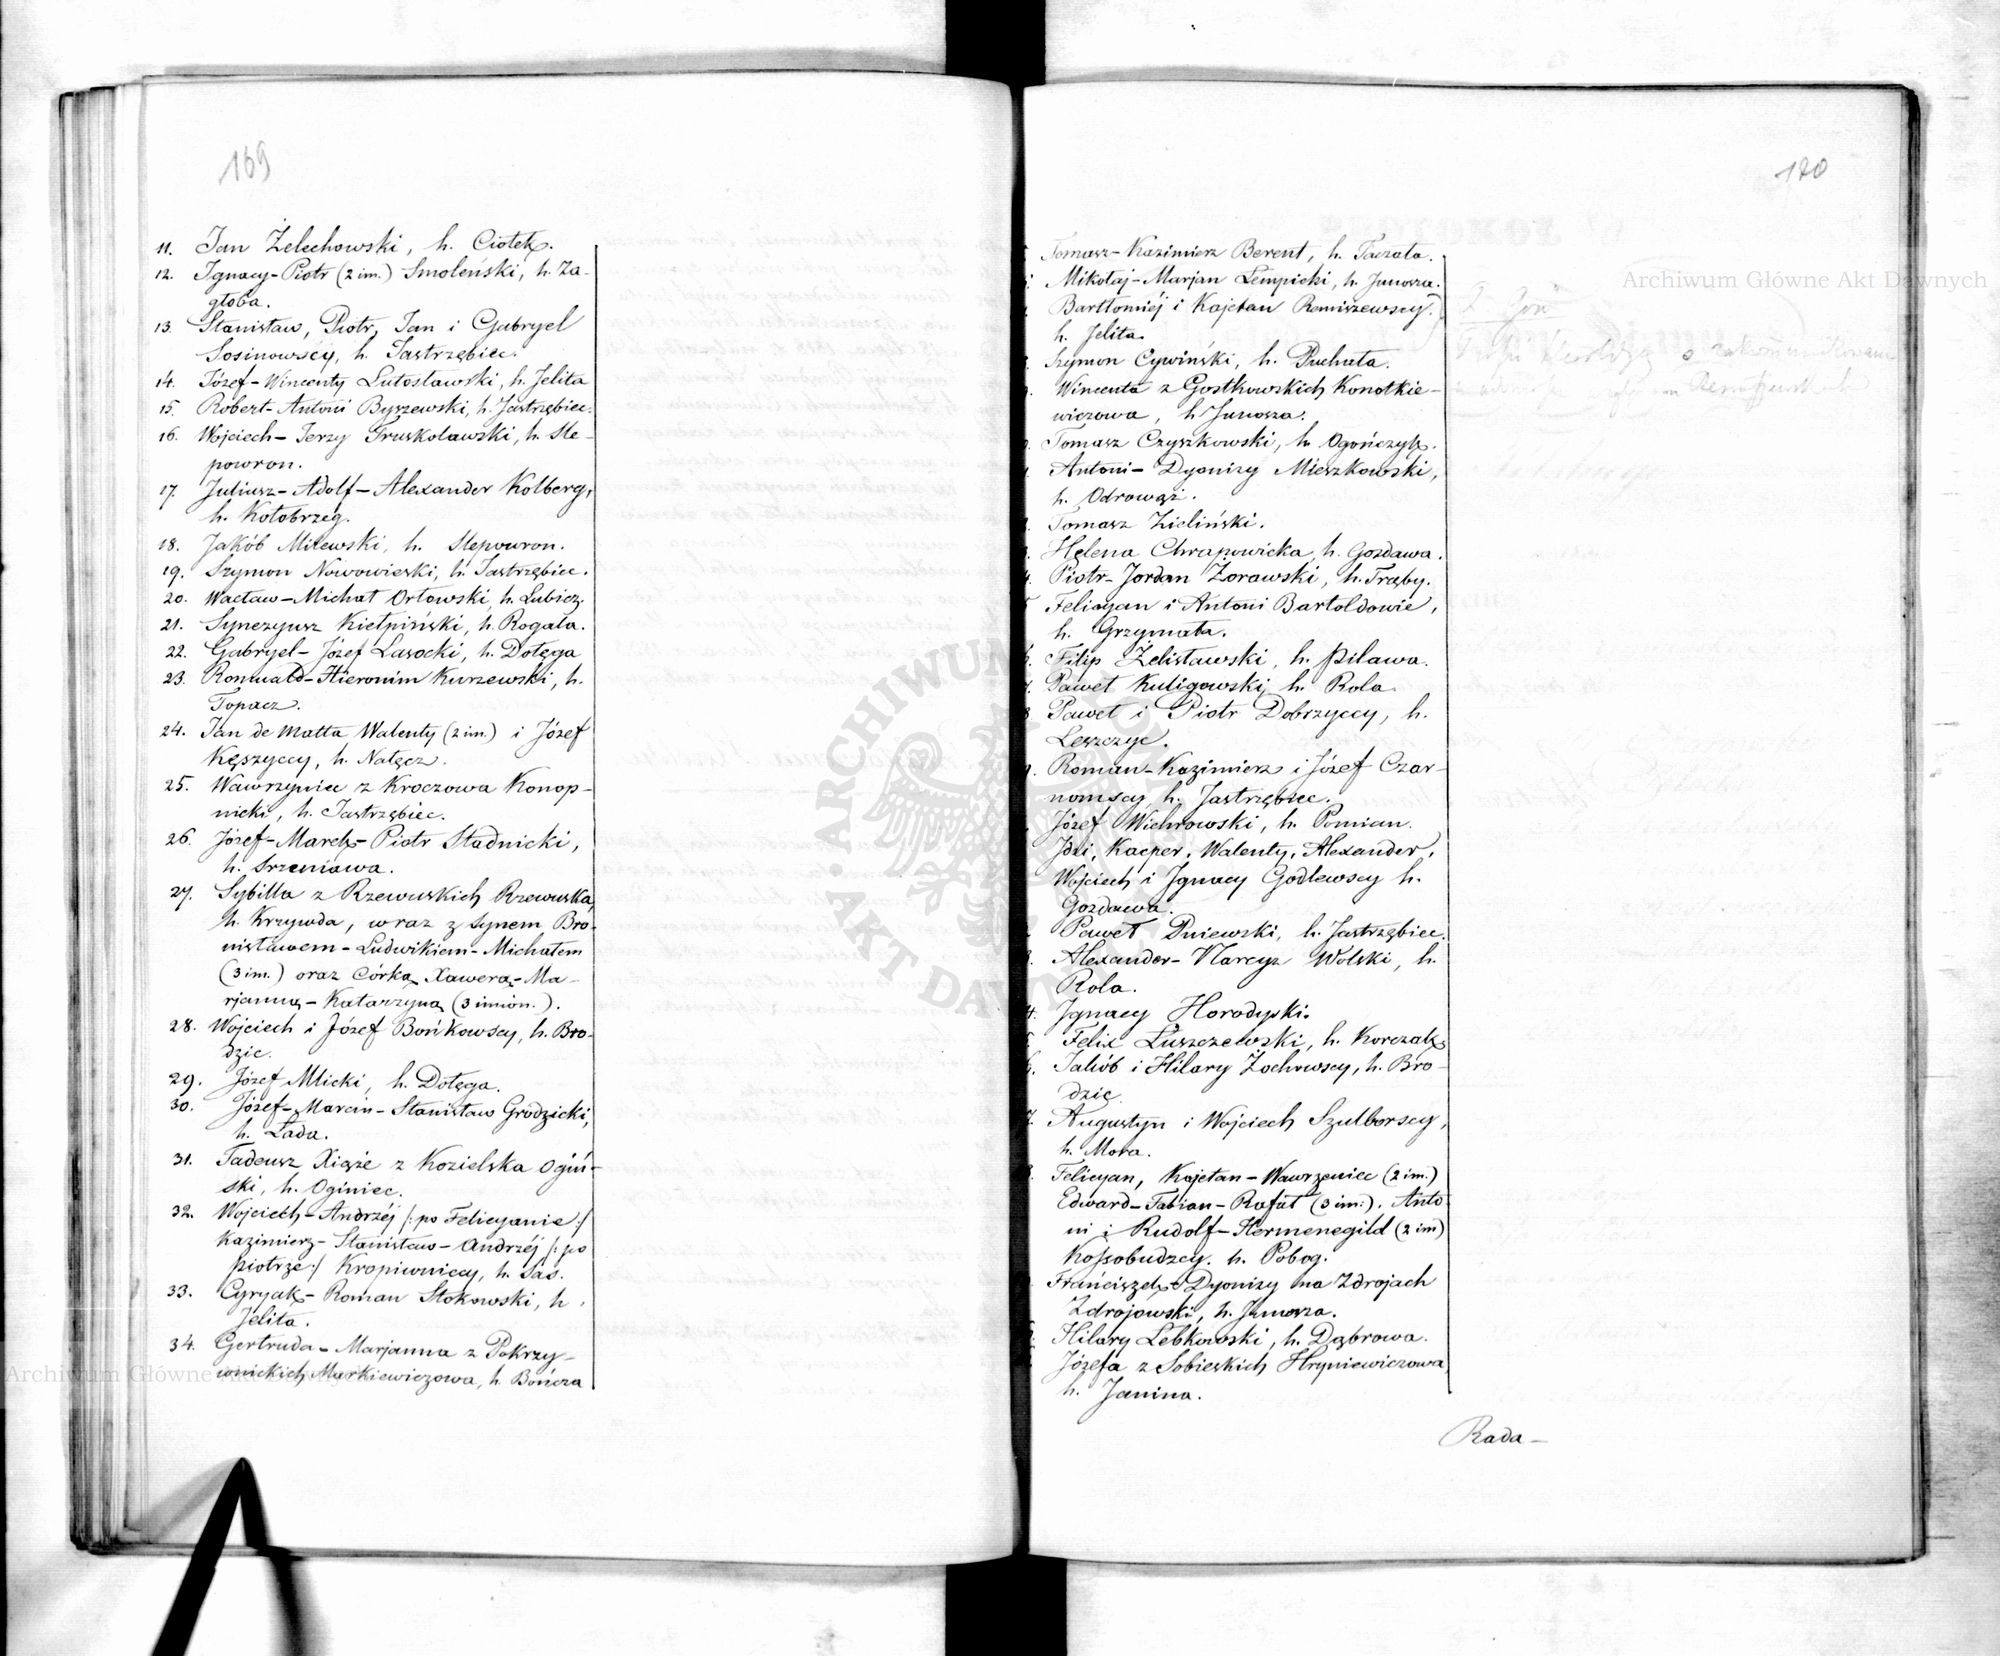 169
11. Jan Żelechowski, h. Ciołek.
12. Ignacy-Piotr (2 im.) Smoleński, h. Za-
głoba.
13. Stanisław, Piotr, Jan i Gabryel
Sosinowscy, h. Jastrzębiec.
14. Józef-Wincenty Lutosławski, h. Jelita
15. Robert-Antoni Byszewski, h. Jastrzębiec.
16. Wojciech-Jerzy Truskolawski, h. Śle-
powron.
17. Juliusz-Adolf-Alexander Kolberg,
h. Kołobrzeg.
18. Jakób Milewski, h. Ślepowron.
19. Szymon Nowowieski, h. Jastrzębiec.
20. Wacław-Michał Orłowski, h. Lubicz.
21. Synezyusz Kiełpiński, h. Rogala.
22. Gabryel-Józef Lasocki, h. Dołęga
23. Romuald-Hieronim Kurzewski, h.
Topacz.
24. Jan de Matta Walenty (2 im.) i Józef
Kęszyccy, h. Nałęcz.
25. Wawrzyniec z Kroczowa Konop-
nicki, h. Jastrzębiec.
26. Józef-Marek-Piotr Stadnicki,
h. Srzeniawa.
27. Sybilla z Rzewuskich Rzewuska,
h. Krzywda, wraz z synem Bro-
nisławem-Ludwikiem-Michałem
(3 im.) oraz Córką Xawerą-Ma-
rjanną-Katarzyną (3 imion.).
28. Wojciech i Józef Bońkowscy, h. Bro-
dzic.
29. Józef Mlicki, h. Dołęga.
30. Józef-Marcin-Stanisław Grodzicki,
h. Łada.
31. Tadeusz Xiąże z Kozielska Ogiń-
ski, h. Oginiec.
32. Wojciech-Andrzéj /: po Felicyanie :/
Kazimierz-Stanisław-Andrzéj /: po
Piotrze :/ Kropiwniccy, h. Sas.
33. Cyryak-Roman Stokowski, h.
Jelita.
34. Gertruda-Marjanna z Pokrzy-
wnickich Markiewiczowa, h. Bończa
120
Tomasz-Kazimierz Berent, h. Taczała.
Mikołaj-Marjan Łempicki, h. Junosza.
Bartłomiéj i Kajetan Remiszewscy
h. Jelita.
Szymon Cywiński, h. Puchała.
Wincenta z Gostkowskich Konotkie-
wiczowa, h Junosza.
Tomasz Czyszkowski, h. Ogończyk.
Antoni-Dyonizy Mieszkowski,
h. Odrowąż.
Tomasz Zieliński.
Helena Chrapowicka, h. Gozdawa.
Piotr-Jordan Żorawski, h. Trąby.
Felicyan i Antoni Bartoldowie,
h. Grzymała.
Filip Żelisławski, h. Pilawa.
Paweł Kuligowski, h. Rola
Paweł i Piotr Dobrzyccy, h.
Leszczyc.
Roman-Kazimierz i Józef Czar-
nomscy, h. Jastrzębiec.
Józef Wichrowski, h. Pomian.
Idzi, Kacper, Walenty, Alexander,
Wojciech i Ignacy Godlewscy h.
Gozdawa.
Paweł Dniewski, h. Jastrzębiec.
Alexander-Narcyz Wolski, h.
Rola.
Ignacy Horodyski.
Felix Łuszczewski, h. Korczak
Jakób i Hilary Żochowscy, h. Bro-
dzic
Augustyn i Wojciech Szulborscy,
h. Mora.
Felicyan, Kajetan-Wawrzeniec (2 im.)
Edward-Fabian-Rafał (3 im.). Anto-
ni i Rudolf-Hermenegild (2 im)
Kossobudzcy. h. Pobog.
Franciszek-Dyonizy na Zdrojach
Zdrojowski, h. Junosza.
Hilary Lebkowski, h. Dąbrowa.
Józefa z Sobieskich Hryniewiczowa,
h. Janina.
Rada-
Archiwum Główne Akt Dawnych
Archiwum Główne Akt Dawnych
ARCHIWUM
AKT DAWNYCH